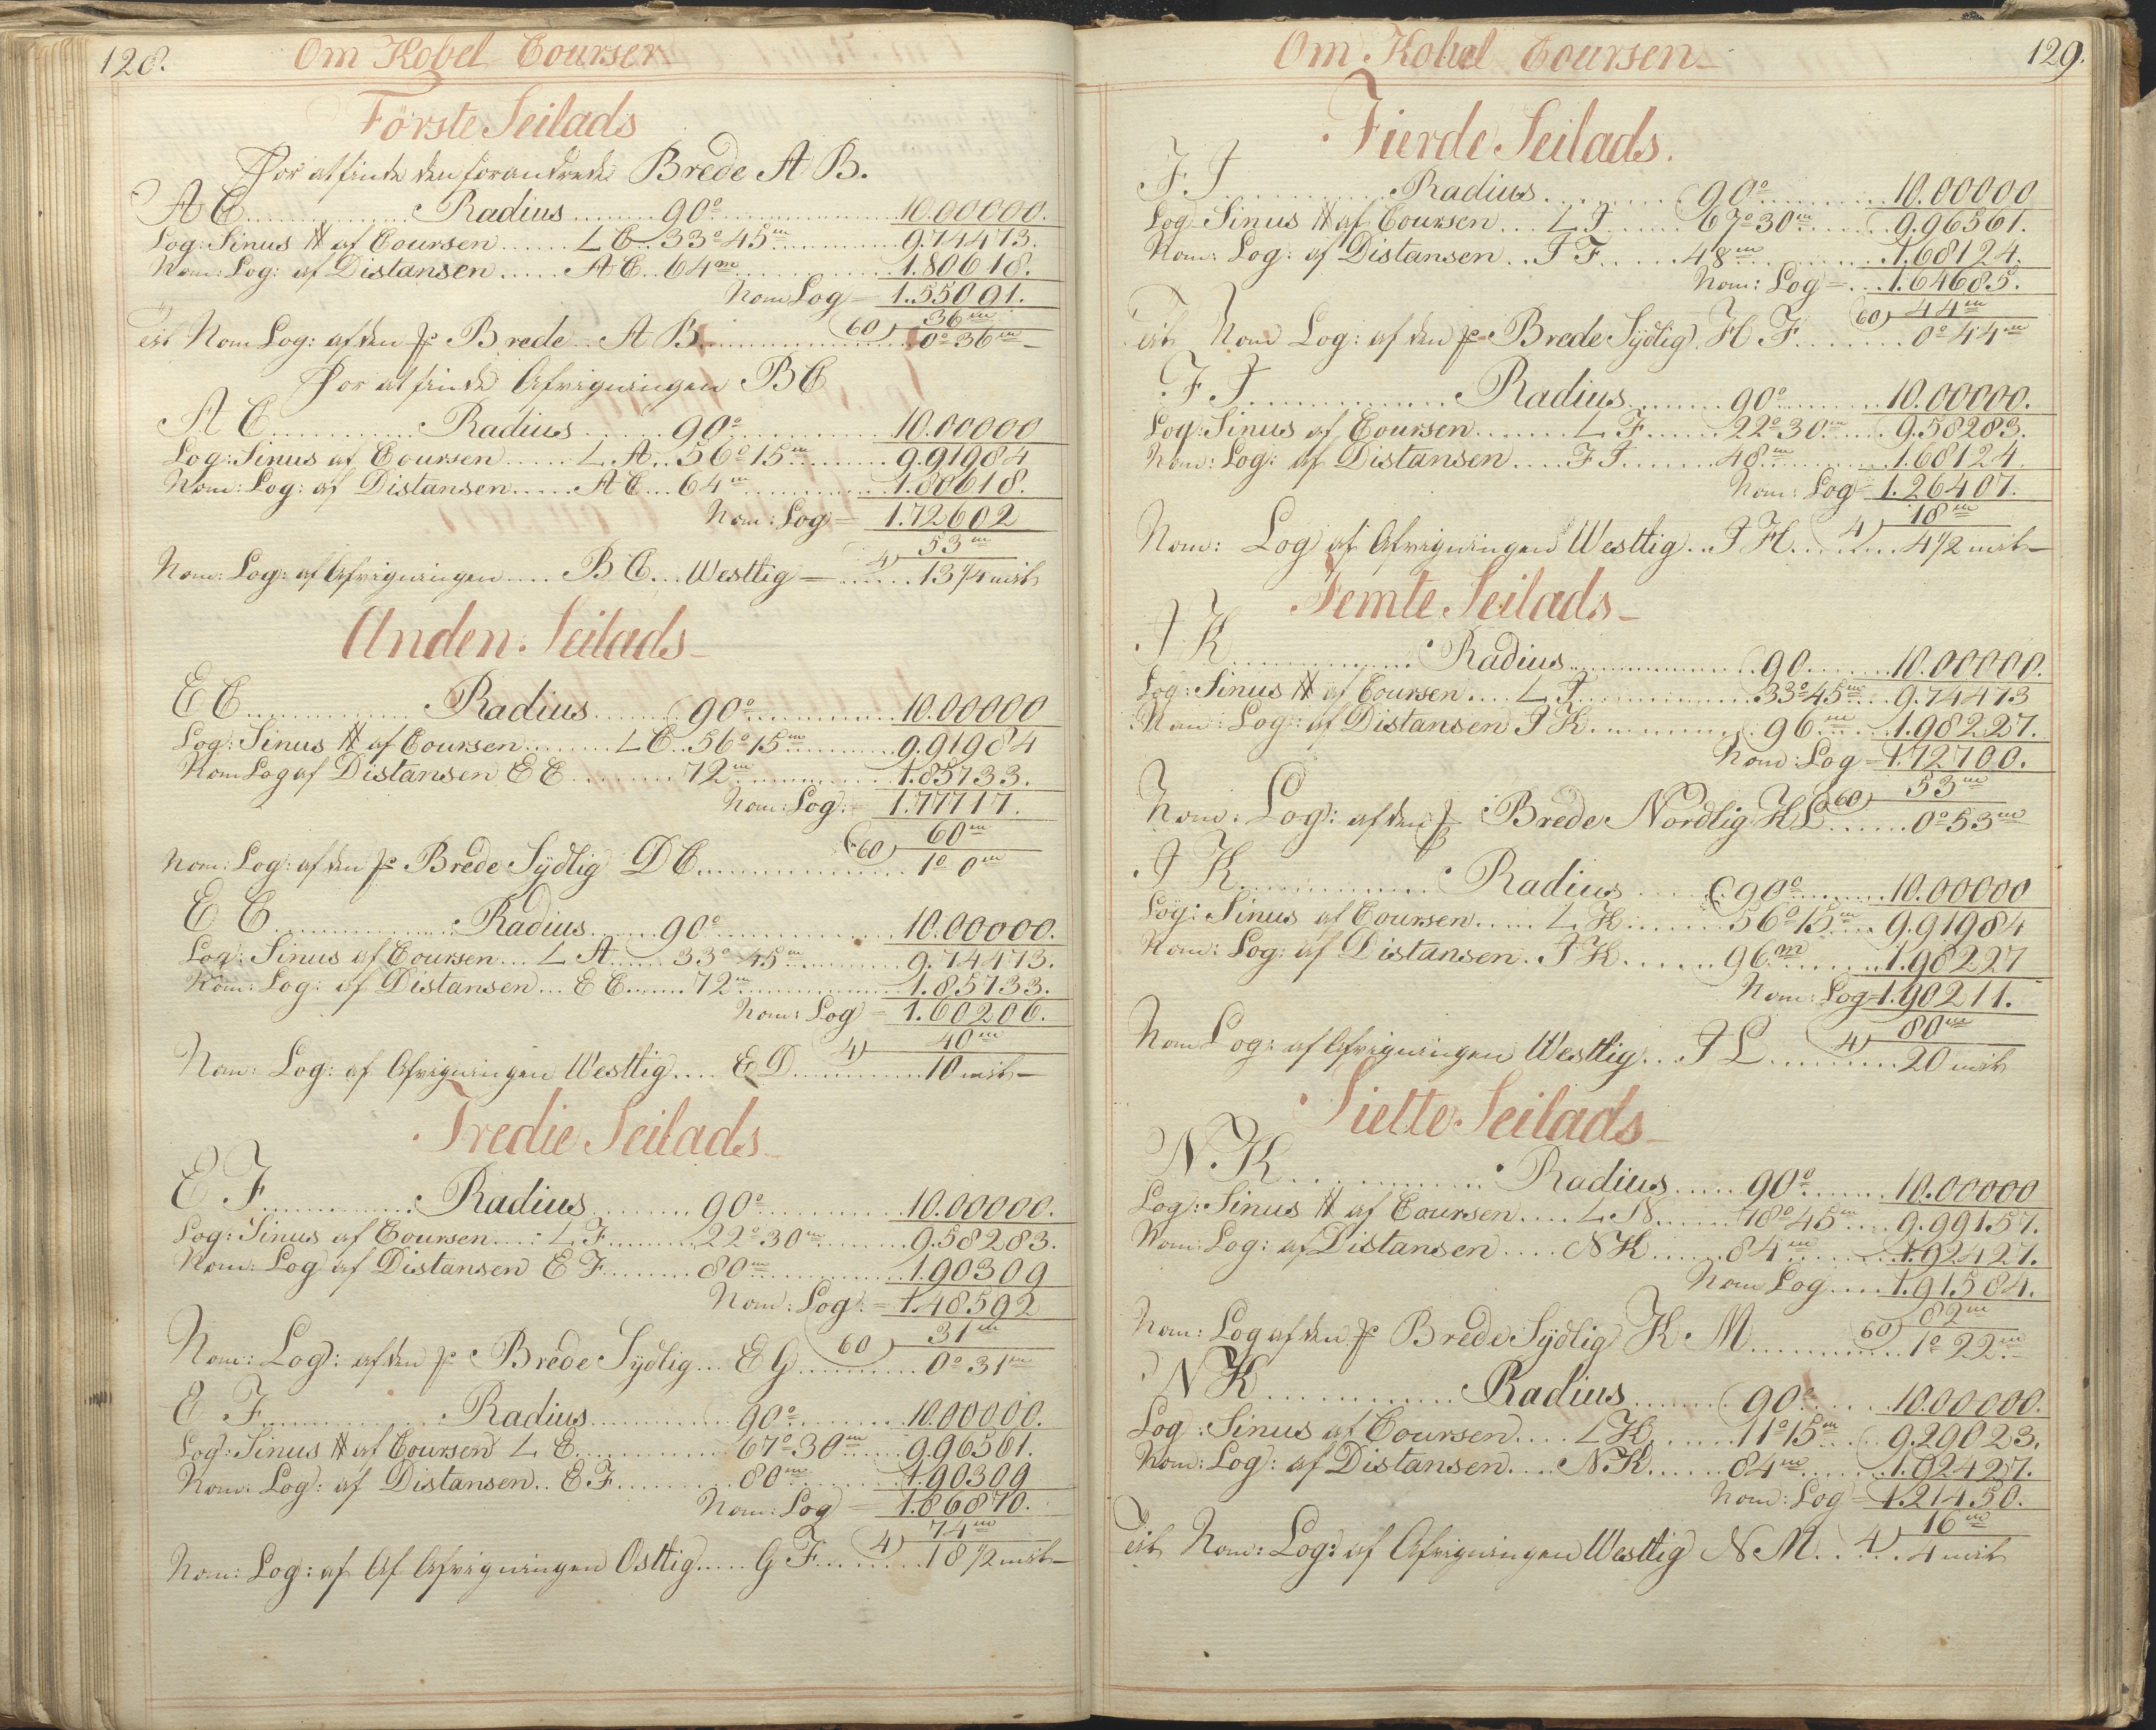 128.
Om Kobel Courser
Förste Seilads
For at finde den forandrede Brede A B.
A C ........ Radius ........ 90° ........ 10.00000.
Log: Sinus # af Coursen ...... L C .. 33° 45m ........ 9.74473.
Nom: Log: af Distansen ..... A C .. 64m ........ 1.80618.
Nom Log = 1.55091.
60) 36m
Nom Log: af den Brede .. A B ........ 0° 36m
For at finde Afvigningen B C
A C ........ Radius ........ 90° ........ 10.00000
Log: Sinus af Coursen ...... L. A .. 56° 15m ........ 9.91984
Nom: Log: af Distansen ..... A C ... 64m ........ 1.80618.
Nom: Log = 1.72602
4) 53m
Nom: Log: af Afvigningen .... B C ... Westlig = ...... 13 1/4 mil
Anden Seilads
E C ........ Radius ........ 90° ........ 10.00000
Log: Sinus # af Coursen ........ L C .. 56° 15m ........ 9.91984
Nom Log af Distansen E C ........ 72m ........ 1.85733.
Nom: Log: = 1.77717.
60) 60m
Nom: Log: af den Brede Sydlig D C ........ 1° 0m
E C ........ Radius ........ 90° ........ 10.00000.
Log: Sinus af Coursen ... L A .... 33° 45m ........ 9.74473.
Nom: Log: af Distansen ... E C ...... 72m ........ 1.85733.
Nom: Log = 1.60206.
4) 40m
Nom: Log: af Afvigningen Westlig .... E D ........ 10 mil
Tredie Seilads
E F ........ Radius ........ 90° ........ 10.00000.
Log: Sinus af Coursen .... L F ........ 22° 30m ........ 9.58283.
Nom: Log af Distansen E F ........ 80m ........ 1.90309
Nom: Log: = 1.48592
60) 31m
Nom: Log: af den Brede Sydlig ... E G ........ 0° 31m
E F ........ Radius ........ 90° ........ 10.00000.
Log: Sinus # af Coursen L E ........ 67° 30m ...... 9.96561.
Nom: Log: af Distansen .. E F ........ 80m ........ 1.90309
Nom: Log = 1.86870.
4) 74m
Nom: Log: af Af Afvigningen Ostlig ..... G F ........ 18 1/2 mil
Om Kobel Coursen
129.
Fierde Seilads.
F I ........ Radius ........ 90° ........ 10.00000
Log Sinus # af Coursen .... L I ...... 67° 30m ...... 9.96561.
Nom: Log: af Distansen .. I F ...... 48m ........ 1.68124.
Nom: Log = ... 1.64685.
60) 44m
Nom Log: af den Brede Sydlig. H F ........ 0° 44m
F I ........ Radius ........ 90° ........ 10.00000.
Log: Sinus af Coursen ....... L F ...... 22° 30m ..... 9.58283.
Nom: Log: af Distansen .... F I ....... 48m ........ 1.68124.
Nom: Log = 1.26407.
4) 18m
Nom: Log af Afvigningen Westlig .. I H ........ 4 1/2 mil
Femte Seilads
I K ........ Radius ........ 90 ........ 10.00000.
Log: Sinus # af Coursen .... L I ........ 33° 45m ... 9.74473
Nom: Log: af Distansen I K ........ 96m ..... 1.98227.
Nom: Log = 1.72700.
60) 53m
Nom: Log: af den Brede Nordlig K L ...... 0° 53m
I K ........ Radius ..... 90° ........ 10.00000
Log: Sinus af Coursen ..... L K ........ 56° 15m .... 9.91984
Nom: Log: af Distansen . I K ...... 96m ........ 1.98227
Nom: Log = 1.90211.
4) 80m
Nom Log: af Afvigningen Westlig ... I L ........ 20 mil
Siette Seilads
N. K ........ Radius ..... 90° ....... 10.00000
Log: Sinus # af Coursen .... L N ...... 78° 45m .... 9.99157.
Nom: Log: af Distansen .... N K ...... 84m ........ 1.92427.
Nom Log .... 1.91584.
60) 82m
Nom: Log af den Brede Sydlig K. M ........ 1° 22m
N K ........ Radius ........ 90° ...... 10.00000.
Log: Sinus af Coursen .... L K ...... 11° 15m .... 9.29023.
Nom: Log: af Distansen .... N K ...... 84m ........ 1.92427.
Nom: Log = 1.21450.
4) 16m
Nom: Log: af Afvigningen Westlig N M ...... 4 mil